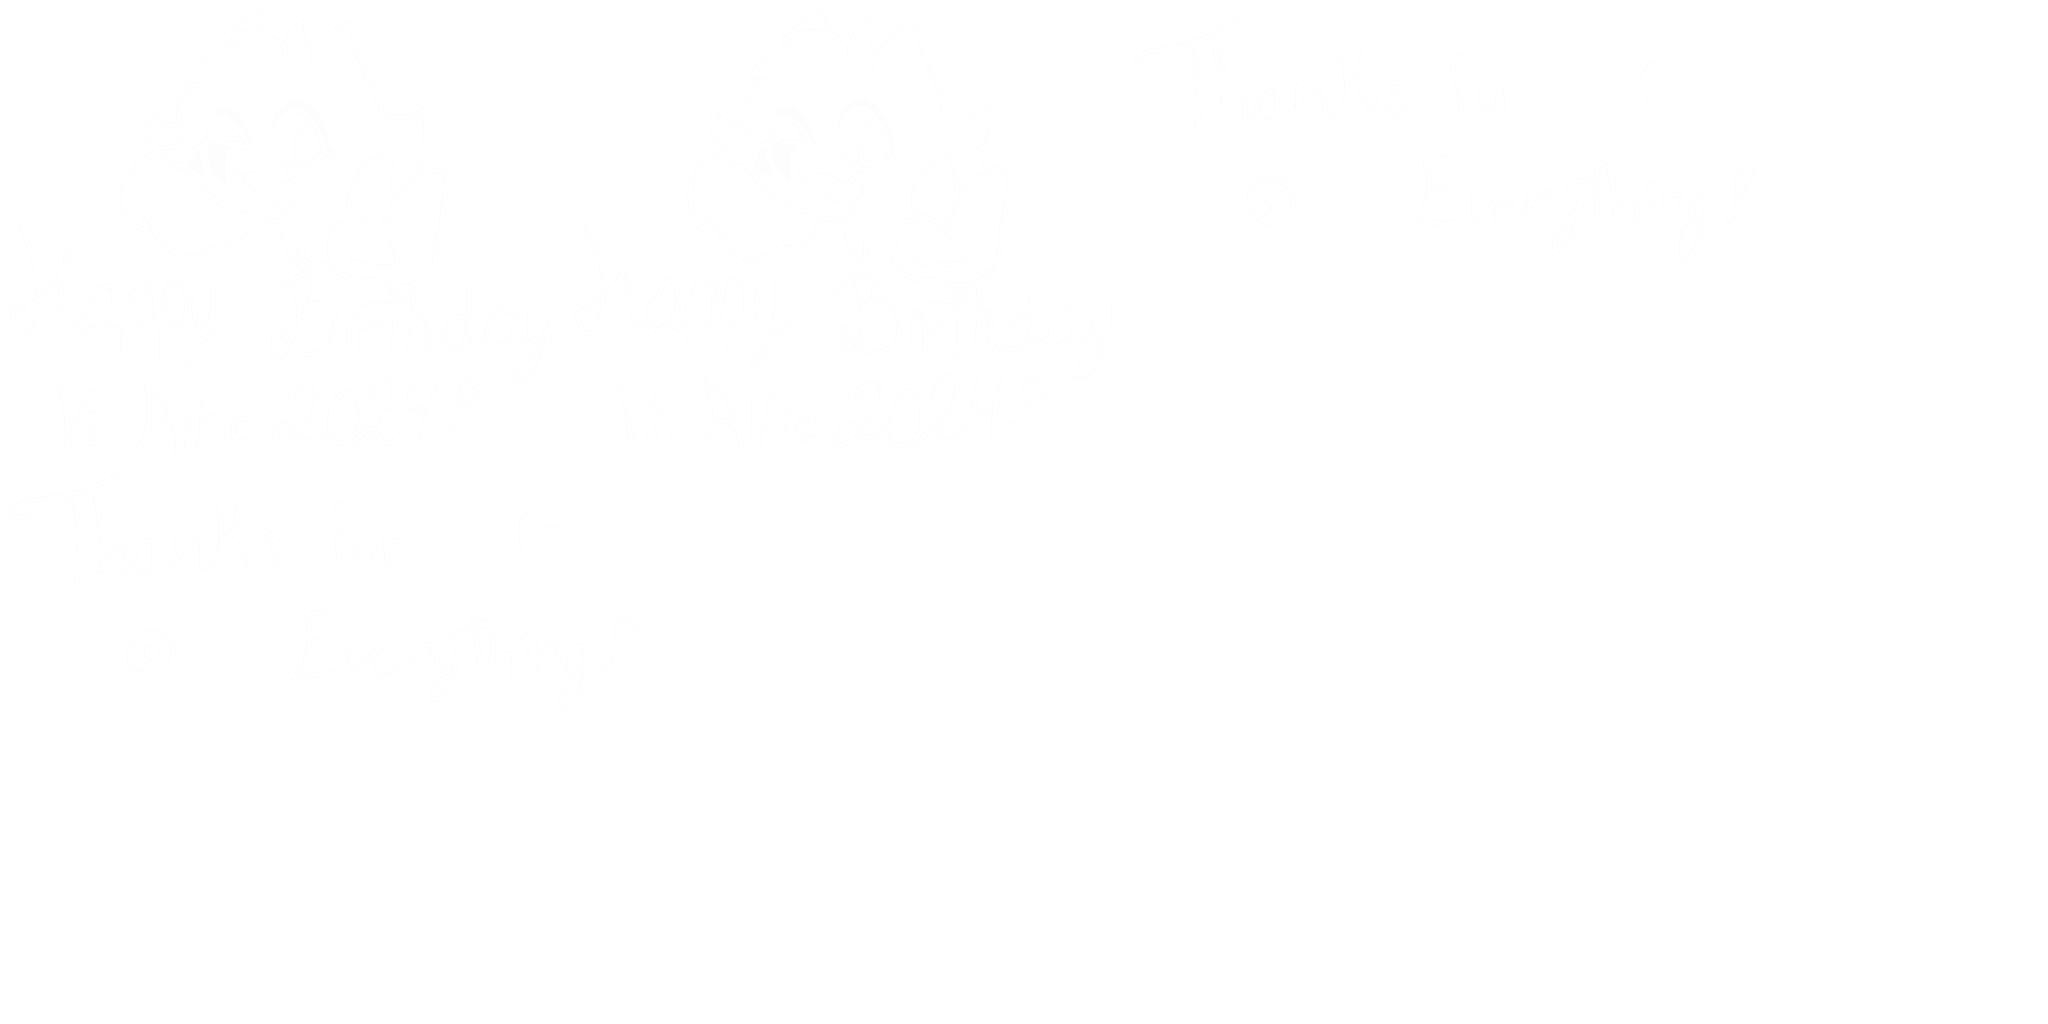 Happy Birthday
2024
Happy Birthday
2024
Thanks for
Everything
Thanks for
Everything